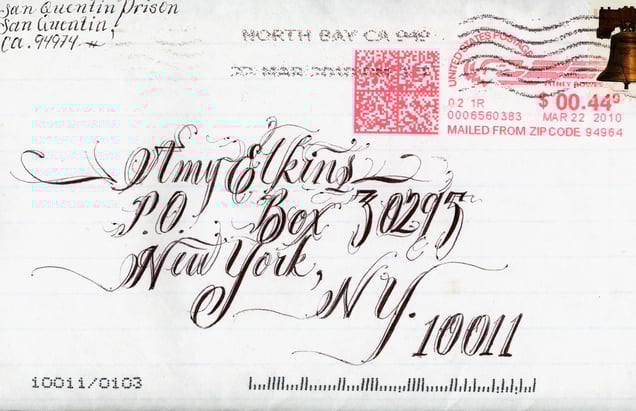 San Quentin Prison
San Quentin,
CA. 94974
NORTH BAY CA 949
22 MAR
UNITED STATES POSTAGE
PITNEY BOWES
02 1R
$ 00.44⁰
0006560383
MAR 22 2010
MAILED FROM ZIP CODE 94964
Amy Elkins
P.O. Box 30295
New York, NY.
10011
10011/0103